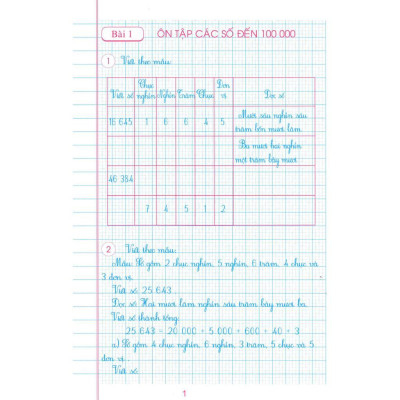 Bài 1 ÔN TẬP CÁC SỐ ĐẾN 100 000
1 Viết theo mẫu:
Viết số Chục nghìn Nghìn Trăm Chục Đơn vị Đọc số
16 645 1 6 6 4 5 Mười sáu nghìn sáu
trăm bốn mươi lăm
Ba mươi hai nghìn
một trăm bảy mươi
46 364
7 4 5 1 2
2 Viết theo mẫu:
Mẫu: Số gồm 2 chục nghìn, 5 nghìn, 6 trăm, 4 chục và
3 đơn vị.
Viết số: 25 643.
Đọc số: Hai mươi lăm nghìn sáu trăm bốn mươi ba.
Viết số thành tổng:
25 643 = 20 000 + 5 000 + 600 + 40 + 3
a) Số gồm 4 chục nghìn, 6 nghìn, 3 trăm, 5 chục và 5
đơn vị.
Viết số:
1